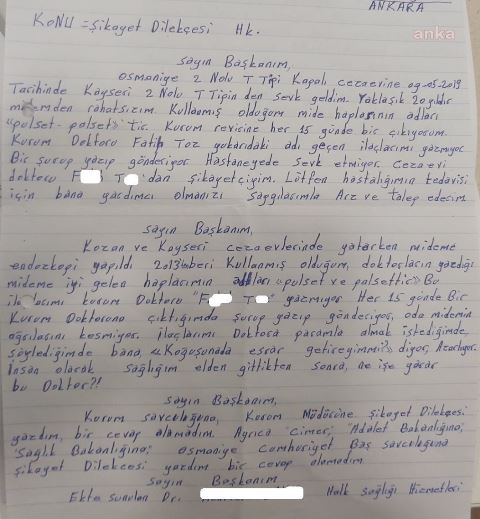 ANKARA
anka
KONU = Şikayet Dilekçesi Hk.
Sayın Başkanım,
Osmaniye 2 Nolu T Tipi Kapalı cezaevine 09-05-2019
Tarihinde Kayseri 2 Nolu T Tipinden sevk geldim. Yaklaşık 20 yıldır
midemden rahatsızım. Kullanmış olduğum mide haplarının adları
"pulset-palset" Tir. Kurum revirine her 15 günde bir çıkıyorum.
Kurum Doktoru Fatih Toz yukarıdaki adı geçen ilaçlarımı yazmıyor
Bir şurup yazıp gönderiyor Hastaneyede Sevk etmiyor. Cezaevi
doktoru F T 'dan şikayetçiyim. Lütfen hastalığımın tedavisi
için bana yardımcı olmanızı Saygılarımla Arz ve talep ederim
Sayın Başkanım,
Kozan ve Kayseri cezaevlerinde yatarken mideme
endozkopi yapıldı 2013'den beri Kullanmış olduğum, doktorların yazdığı
mideme iyi gelen haplarımın adları "pulset ve palsettir" Bu
ilaçlarımı kurum Doktoru "F T " yazmıyor Her 15 günde Bir
Kurum Doktoruna çıktığımda şurup yazıp gönderiyor, oda midemin
ağrılarını kesmiyor. İlaçlarımı Doktora paramla almak istediğimde,
söylediğimde bana, "Koğuşunada esrar getireyimmi?" diyor, Azarlıyor.
İnsan olarak sağlığım elden gittikten sonra, ne işe yarar
bu Doktor?!
Sayın Başkanım,
Kurum savcılığına, Kurum Müdürüne Şikayet Dilekçesi
yazdım, bir cevap alamadım. Ayrıca 'Cimer', 'Adalet Bakanlığına;
'Sağlık Bakanlığına; Osmaniye Cumhuriyet Baş savcılığına
şikayet Dilekçesi yazdım bir cevap alamadım.
Sayın Başkanım
Ekte sunulan Dr. Halk Sağlığı Hizmetleri